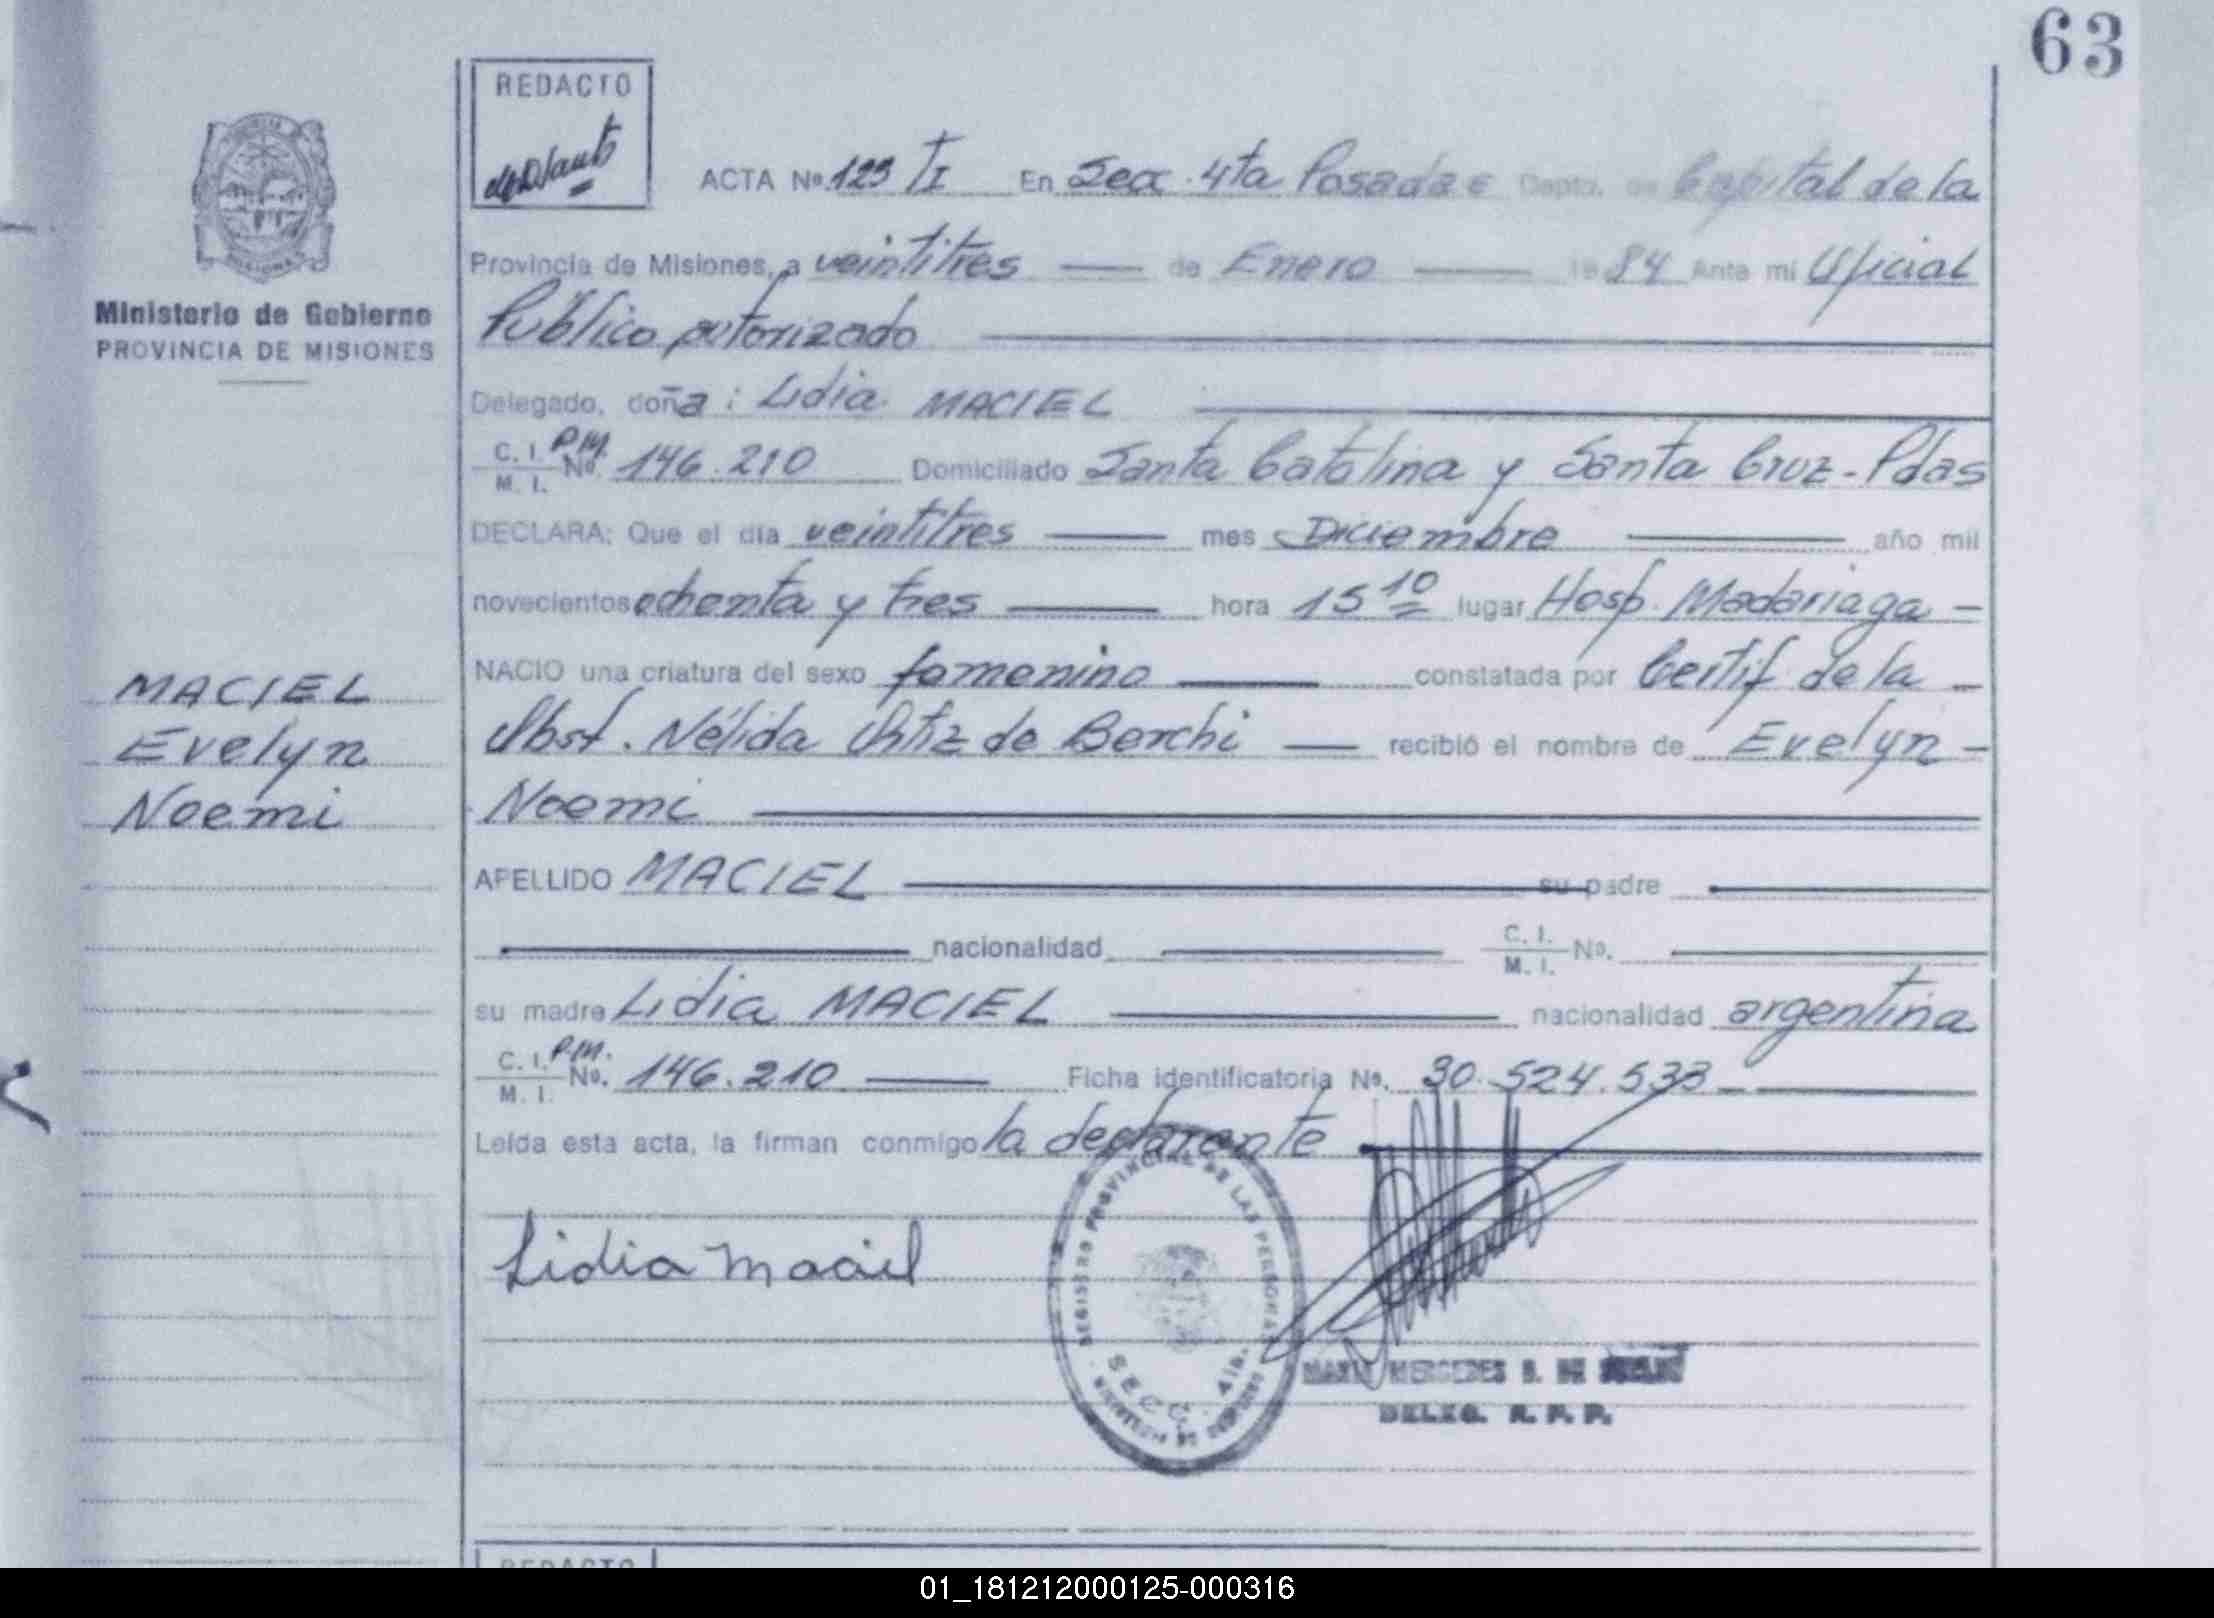 63
REDACTO
ACTA Nº 123 TI En Sec. 4ta Posadas Depto. de Capital de la
Provincia de Misiones, a veintitres — de Enero — 1984 Ante mi Oficial
Público autorizado
Delegado, doña: Lidia MACIEL
C. I. P.M.
M. I. Nº. 146.210 Domiciliado Santa Catalina y Santa Cruz - Pdas
DECLARA: Que el día veintitres — mes Diciembre — año mil
novecientos ochenta y tres — hora 15 10 lugar Hosp. Madariaga -
NACIO una criatura del sexo femenino — constatada por Certif de la -
Obst. Nélida Ortiz de Berchi — recibió el nombre de Evelyn -
Noemi
APELLIDO MACIEL — su padre —
— nacionalidad — C. I.
M. I. Nº. —
su madre Lidia MACIEL — nacionalidad argentina
C. I. P.M.
M. I. Nº. 146.210 — Ficha identificatoria Nº. 30.524.533 -
Leída esta acta, la firman conmigo la declarante
Lidia Maciel
REGISTRO PROVINCIAL DE LAS PERSONAS
SECC. 4ta.
MERCEDES B. DE
DELEG. R. P. P.
Ministerio de Gobierno
PROVINCIA DE MISIONES
MACIEL
Evelyn
Noemi
REDACTO
01_181212000125-000316